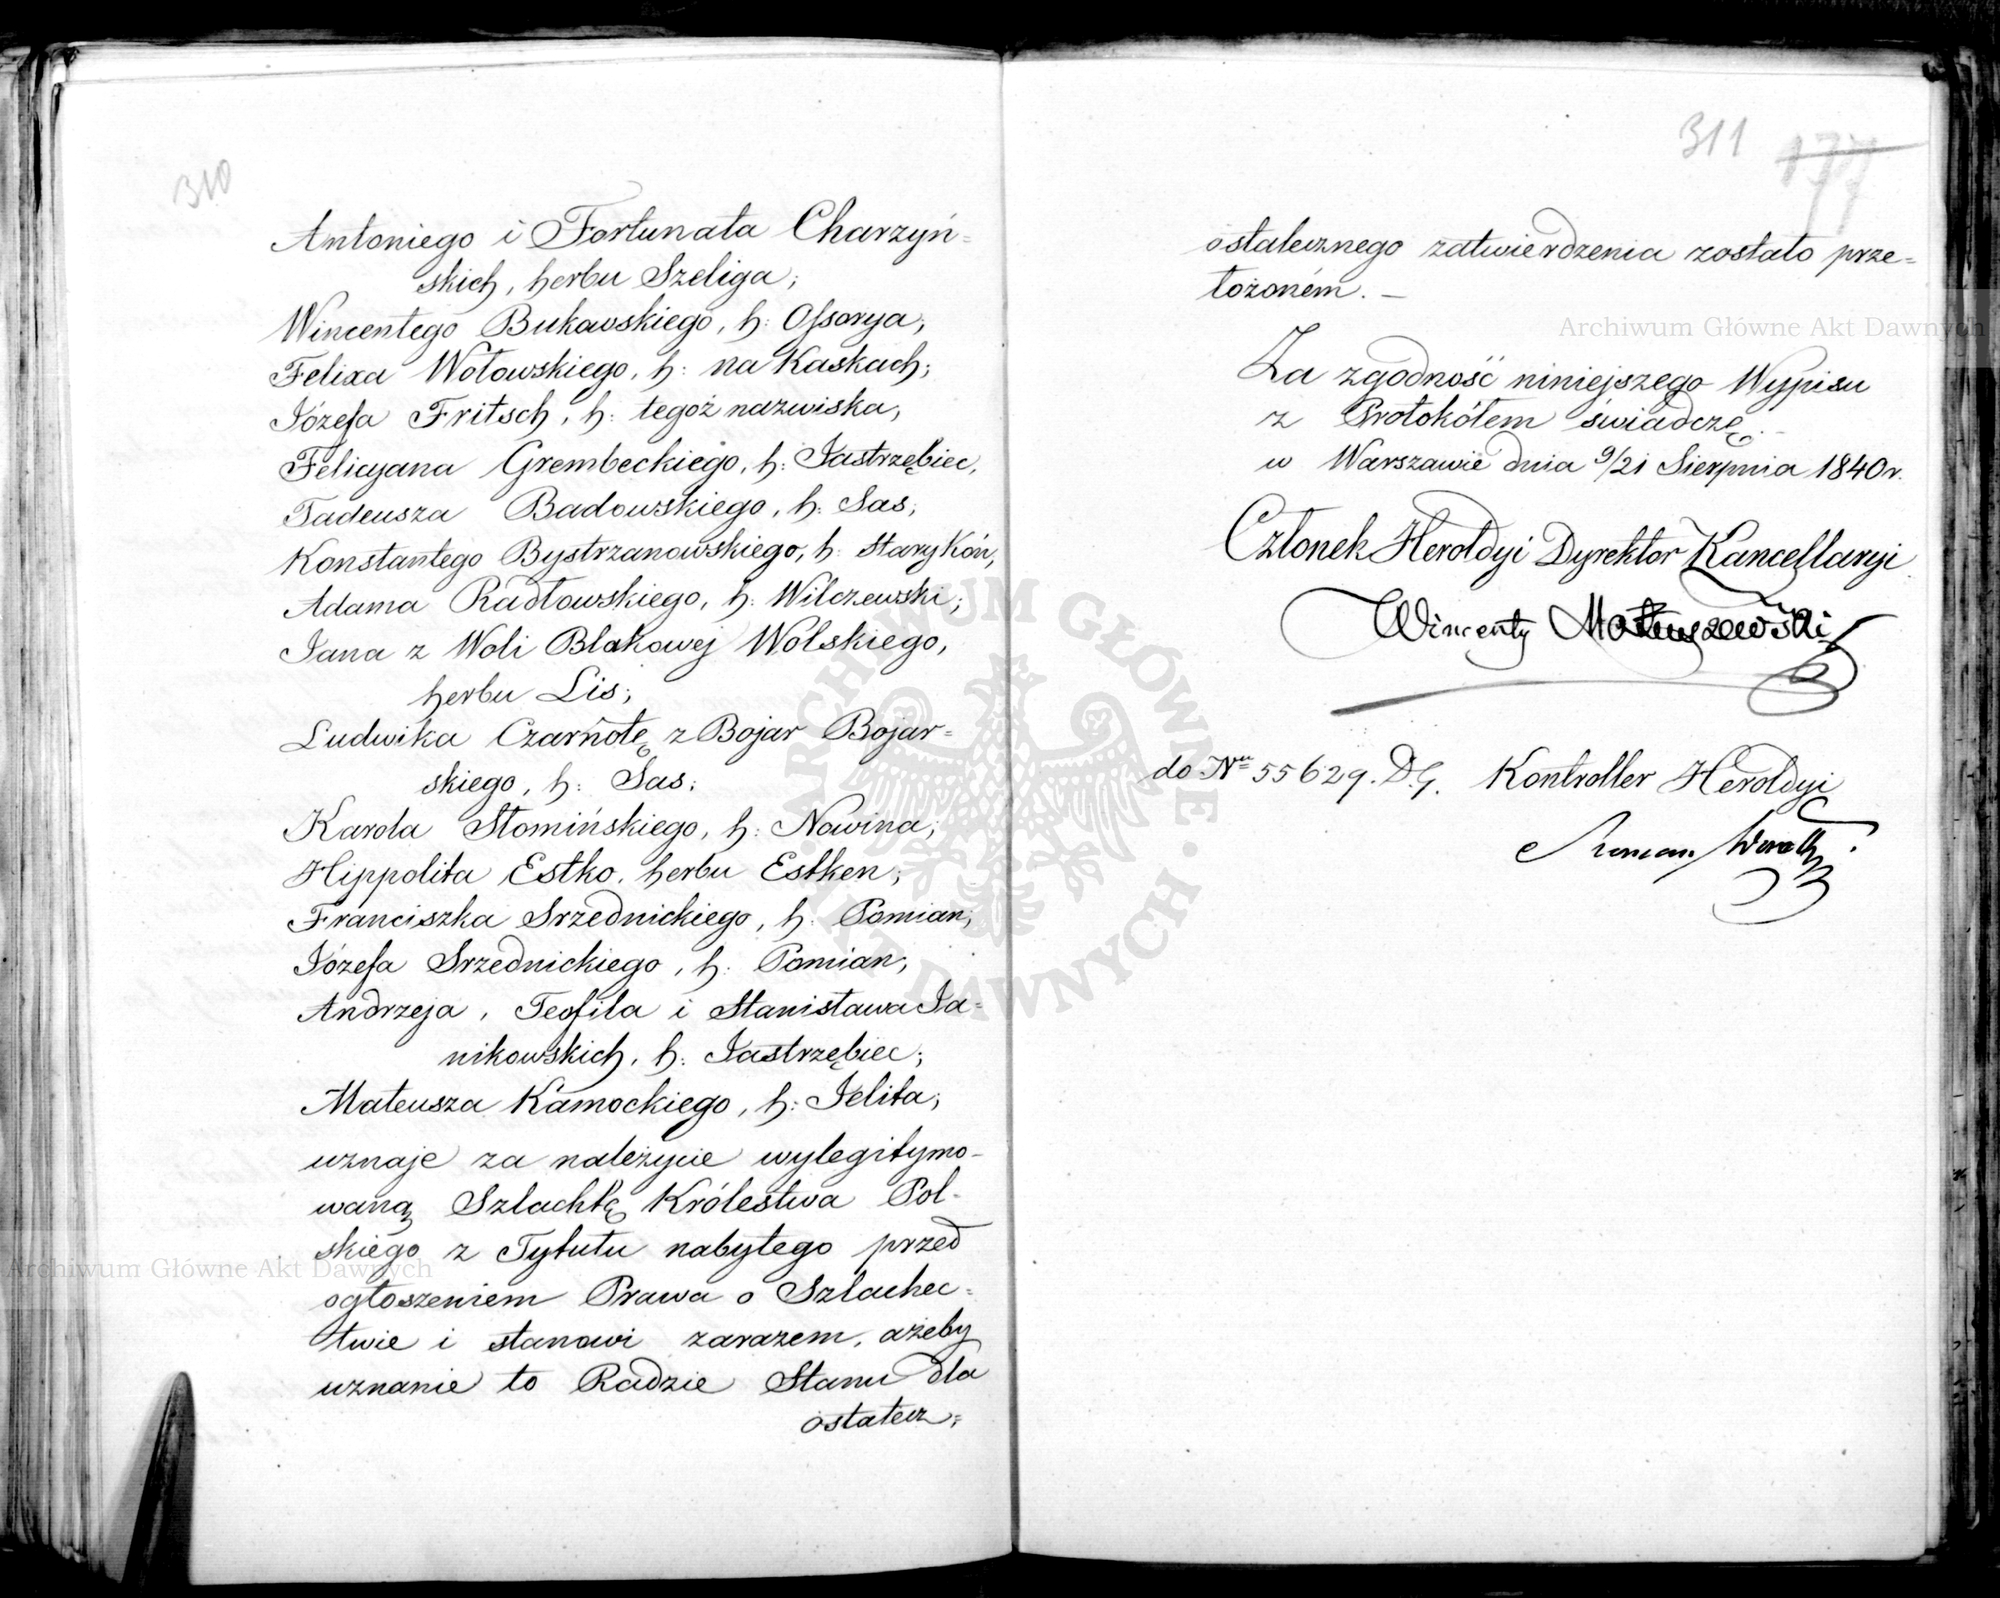 310
Antoniego i Fortunata Charzyń=
skich, herbu Szeliga;
Wincentego Bukowskiego, h: Ossorya;
Felixa Wołowskiego, h: na Kaskach;
Józefa Fritsch, h: tegoż nazwiska;
Felicyana Grembeckiego, h: Jastrzębiec,
Tadeusza Badowskiego, h: Sas;
Konstantego Bystrzanowskiego, h: Stary Kóń,
Adama Radłowskiego, h: Wilczewski;
Jana z Woli Blakowej Wolskiego,
herbu Lis;
Ludwika Czarnotę z Bojar Bojar=
skiego, h: Sas;
Karola Słomińskiego, h: Nowina;
Hippolita Estko, herbu Estken;
Franciszka Srzednickiego, h: Pomian;
Józefa Srzednickiego, h: Pomian;
Andrzeja, Teofila i Stanisława Ja=
nikowskich, h: Jastrzębiec;
Mateusza Kamockiego, h: Jelita;
uznaje za należycie wylegitymo-
waną Szlachtę Królestwa Pol-
skiego z Tytułu nabytego przed
ogłoszeniem Prawa o Szlachec=
twie i stanowi zarazem, ażeby
uznanie to Radzie Stanu dla
ostatecz=
311 177
ostatecznego zatwierdzenia zostało prze=
łożoném. —
Za zgodność niniejszego Wypisu
z Protokółem świadczę. -
w Warszawie dnia 9/21 Sierpnia 1840 r.
Członek Heroldyi Dyrektor Kancellaryi
Wincenty Matuszewski
do Nru 55629. D.G. Kontroller Heroldyi
Roman
ARCHIWUM GŁÓWNE AKT DAWNYCH
Archiwum Główne Akt Dawnych
Archiwum Główne Akt Dawnych